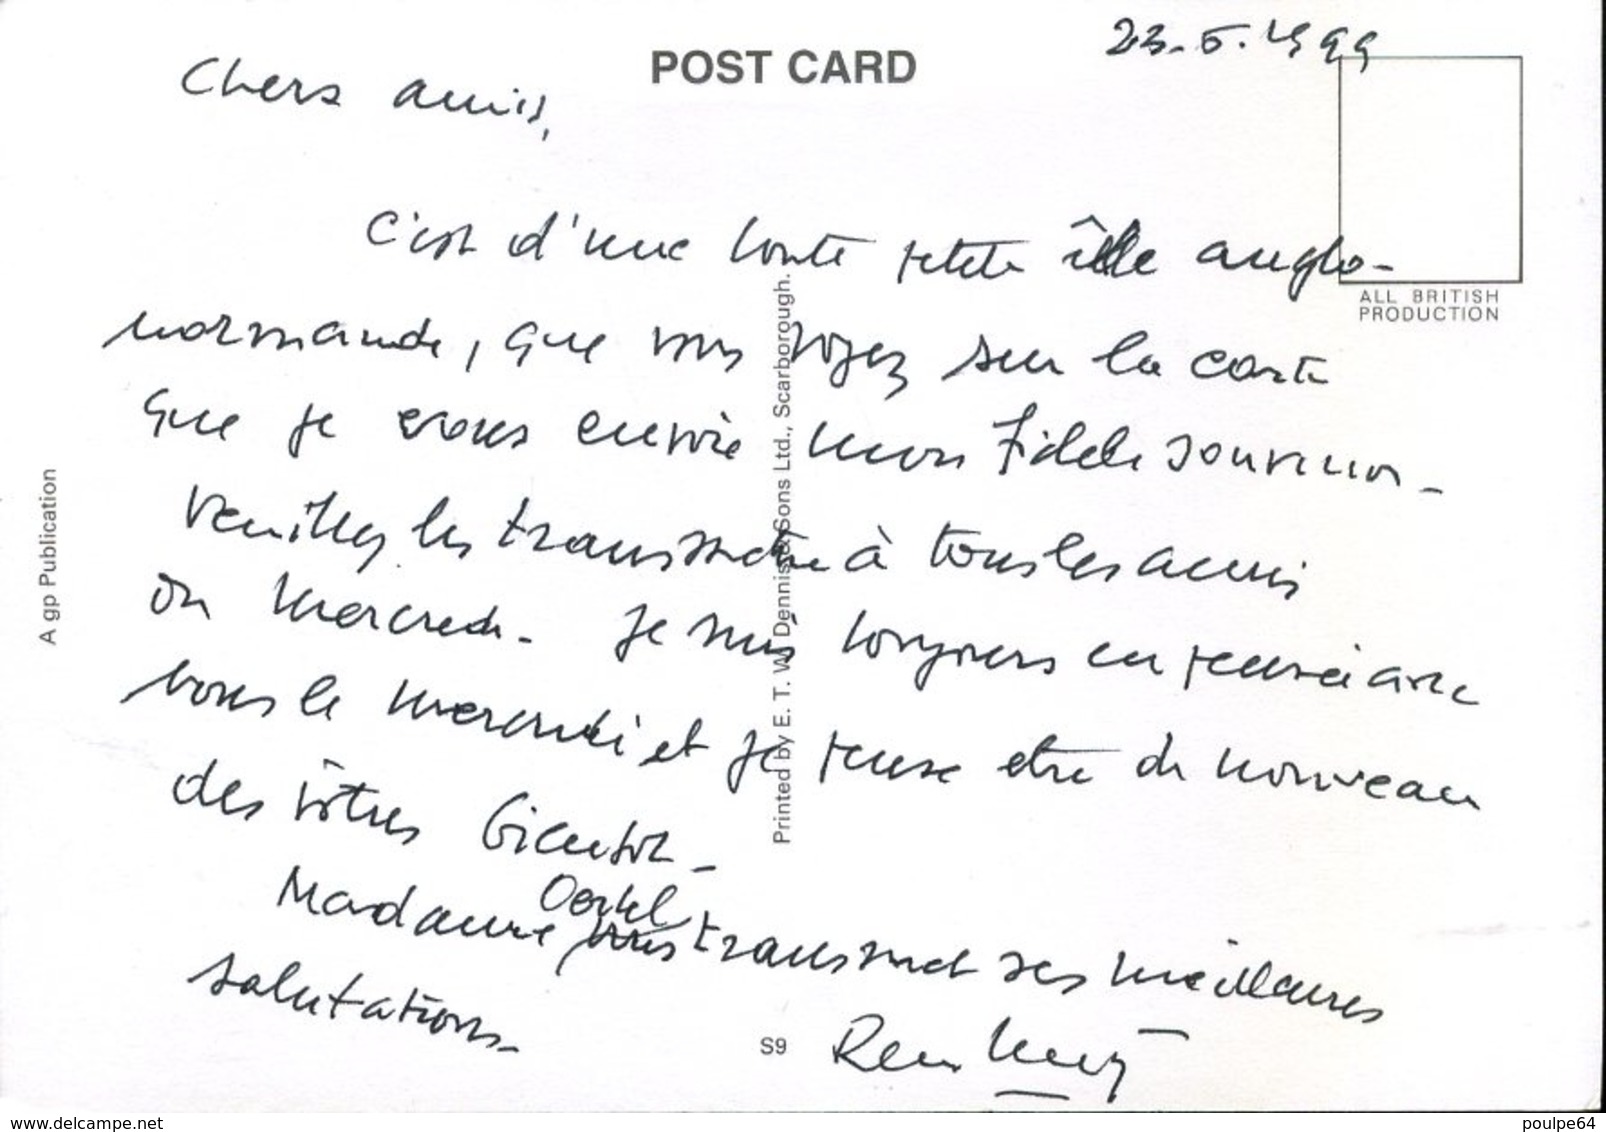 23.5.1999
POST CARD
Chers amis,
ALL BRITISH
PRODUCTION
C'est d'une toute petite île anglo-
normande, que vous voyez sur la carte
que je vous envoie mon fidèle souvenir.
Veuillez les transmettre à tous les amis
du Mercredi. Je suis toujours en pensée avec
vous le mercredi et je pense être de nouveau
des vôtres bientôt.
Madame transmet ses meilleures
salutations.
A gp Publication
Printed by E. T. W. Dennis & Sons Ltd., Scarborough.
S9
www.delcampe.net
poulpe64